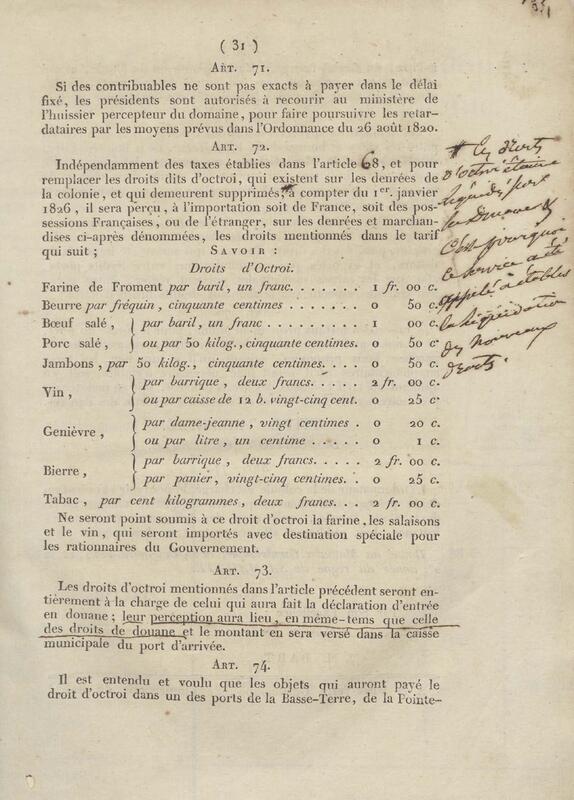 ( 31 )
ART. 71.
Si des contribuables ne sont pas exacts à payer dans le délai
fixé, les présidents sont autorisés à recourir au ministère de
l'huissier percepteur du domaine, pour faire poursuivre les retar-
dataires par les moyens prévus dans l'Ordonnance du 26 août 1820.
ART. 72.
Indépendamment des taxes établies dans l'article 68, et pour
remplacer les droits dits d'octroi, qui existent sur les denrées de
la colonie, et qui demeurent supprimés à compter du 1er. janvier
1826, il sera perçu, à l'importation soit de France, soit des pos-
sessions Françaises, ou de l'étranger, sur les denrées et marchan-
dises ci-après dénommées, les droits mentionnés dans le tarif
qui suit ;
SAVOIR :
Droits d'Octroi.
Farine de Froment par baril, un franc. . . . . . . 1 fr. 00 c.
Beurre par fréquin, cinquante centimes . . . . . . 0 50 c.
Bœuf salé, } par baril, un franc . . . . . . . . . 1 00 c.
Porc salé, } ou par 50 kilog., cinquante centimes. 0 50 c.
Jambons, par 50 kilog., cinquante centimes. . . . 0 50 c.
Vin, } par barrique, deux francs. . . . . . 2 fr. 00 c.
ou par caisse de 12 b. vingt-cinq cent. 0 25 c.
Genièvre, } par dame-jeanne, vingt centimes . 0 20 c.
ou par litre, un centime . . . . . 0 1 c.
Bierre, } par barrique, deux francs. . . . . 2 fr. 00 c.
par panier, vingt-cinq centimes. . 0 25 c.
Tabac, par cent kilogrammes, deux francs. . . 2 fr. 00 c.
Ne seront point soumis à ce droit d'octroi la farine, les salaisons
et le vin, qui seront importés avec destination spéciale pour
les rationnaires du Gouvernement.
ART. 73.
Les droits d'octroi mentionnés dans l'article précédent seront en-
tièrement à la charge de celui qui aura fait la déclaration d'entrée
en douane ; leur perception aura lieu, en même-tems que celle
des droits de douane et le montant en sera versé dans la caisse
municipale du port d'arrivée.
ART. 74.
Il est entendu et voulu que les objets qui auront payé le
droit d'octroi dans un des ports de la Basse-Terre, de la Pointe-
droits
d'octroi étaient
liquidés par
la Douane
C'est pourquoi
ce service a été
appelé à établir
la liquidation
des nouveaux
droits.